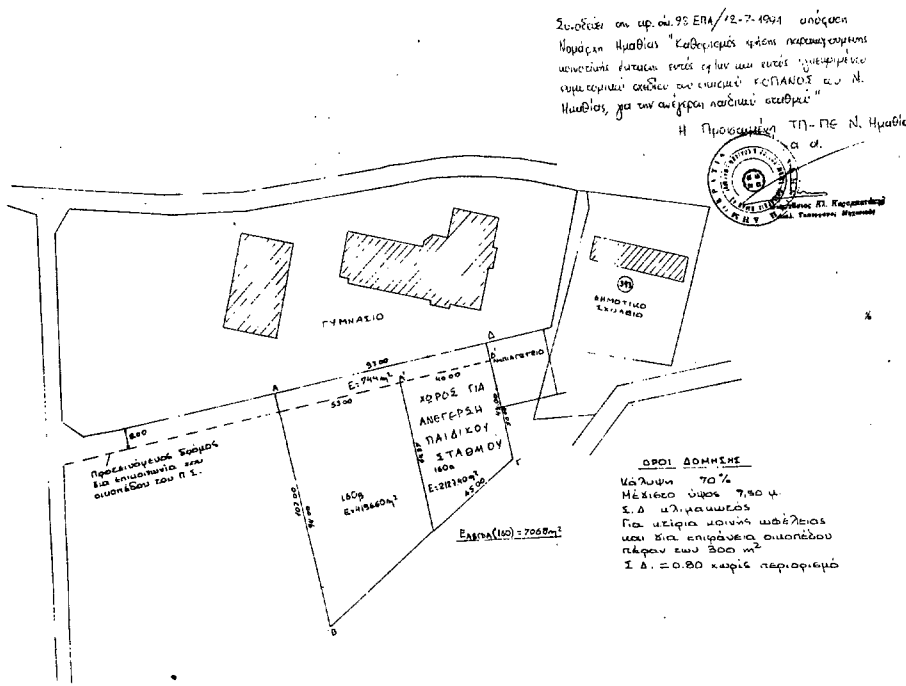 Συνοδεύει την αρ. οικ. 98 ΕΠΑ/12-7-1991 απόφαση
Νομάρχη Ημαθίας "Καθορισμός χρήσης παραχωρούμενης
κοινοτικής έκτασης εντός
οικισμού ΚΟΠΑΝΟΣ του Ν.
Ημαθίας, για την ανέγερση παιδικού σταθμού"
Η Προϊσταμένη ΤΠ-ΠΕ Ν. Ημαθίας
α α.
392
ΔΗΜΟΤΙΚΟ
ΣΧΟΛΕΙΟ
ΓΥΜΝΑΣΙΟ
Δ
Δ'
ΝΗΠΙΑΓΩΓΕΙΟ
93.00
Ε=744m²
Α
Α'
53.00
40.00
8.00
Προτεινόμενος δρόμος
δια επικοινωνία του
οικοπέδου του Π.Σ.
ΧΩΡΟΣ ΓΙΑ
ΑΝΕΓΕΡΣΗ
ΠΑΙΔΙΚΟΥ
ΣΤΑΘΜΟΥ
160α
Ε=2127.40m²
45.00
Γ
160β
Ε=4196.60m²
Β
ΕΑΒΓΔΑ(160) = 7068m²
ΟΡΟΙ ΔΟΜΗΣΗΣ
Κάλυψη 70%
Μέγιστο ύψος 7,50 μ.
Σ.Δ κλιμακωτός
Για κτίρια κοινής ωφέλειας
και για επιφάνεια οικοπέδου
πέραν των 300 m²
Σ Δ. = 0.80 χωρίς περιορισμό